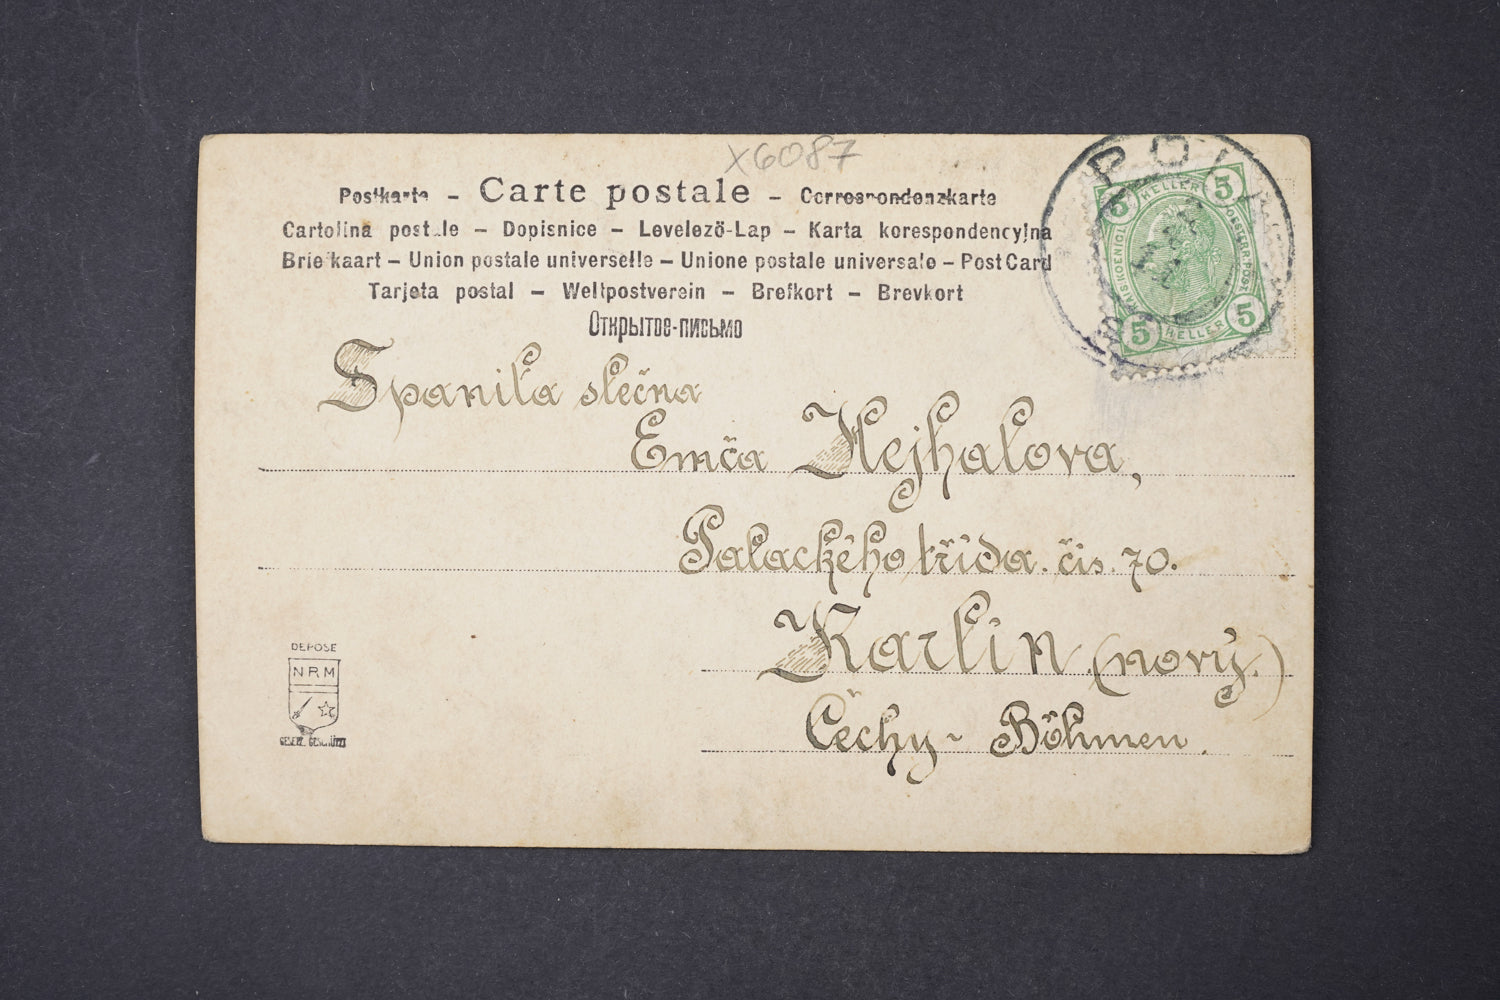 x6087
Postkarte – Carte postale – Correspondenzkarte
Cartolina postale – Dopisnice – Levelezö-Lap – Karta korespondencyjna
Briefkaart – Union postale universelle – Unione postale universale – Post Card
Tarjeta postal – Weltpostverein – Brefkort – Brevkort
Открытое-письмо
5 HELLER 5
KAIS. KOENIGL. OESTERR. POST
5 HELLER 5
Spanila slečna
Emča Hejhalova,
Palackého třida. čis. 70.
Karlin (nový.)
Čechy - Böhmen.
DEPOSE
NRM
GESETZ. GESCHÜTZT